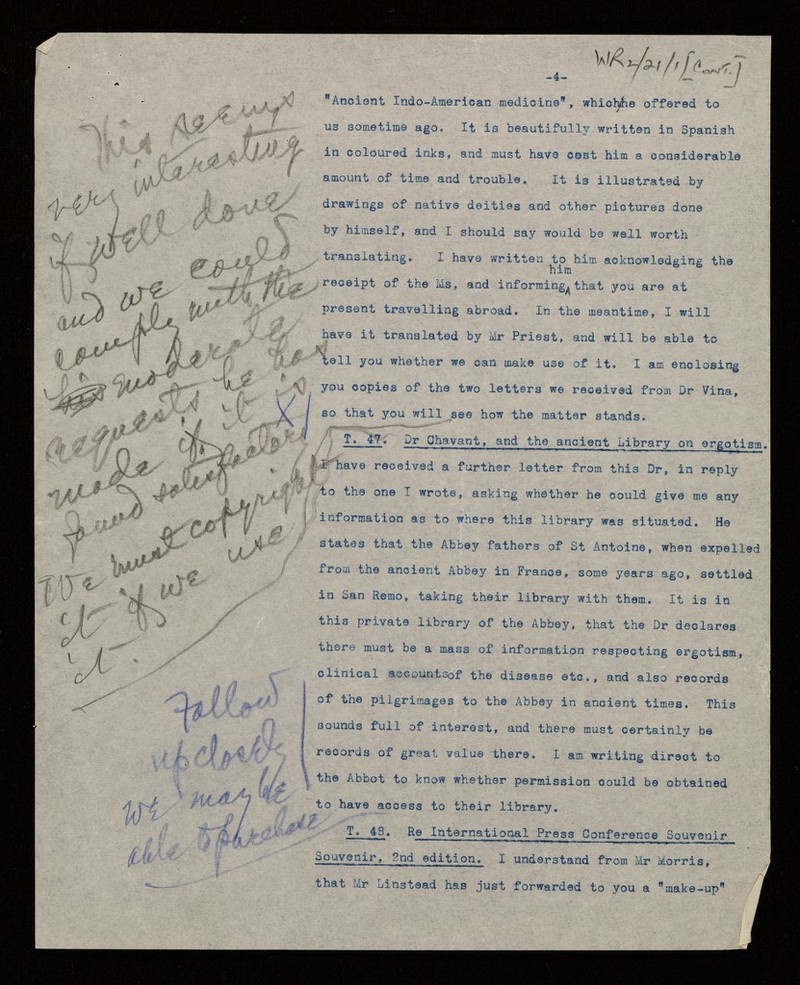 WR2/21/1[Cont.]
-4-
"Ancient Indo-American medicine", which he offered to
us sometime ago. It is beautifully written in Spanish
in coloured inks, and must have cost him a considerable
amount of time and trouble. It is illustrated by
drawings of native deities and other pictures done
by himself, and I should say would be well worth
translating. I have written to him acknowledging the
him
receipt of the Ms, and informing that you are at
present travelling abroad. In the meantime, I will
have it translated by Mr Priest, and will be able to
tell you whether we can make use of it. I am enclosing
you copies of the two letters we received from Dr Vina,
so that you will see how the matter stands.
This seems
very interesting
if well done
and we could
comply with the
moderate
requests he has
made if it is
found satisfactory
We must copyright
it if we use
it.
X
T. 47. Dr Chavant, and the ancient Library on ergotism.
I have received a further letter from this Dr, in reply
to the one I wrote, asking whether he could give me any
information as to where this library was situated. He
states that the Abbey fathers of St Antoine, when expelled
from the ancient Abbey in France, some years ago, settled
in San Remo, taking their library with them. It is in
this private library of the Abbey, that the Dr declares
there must be a mass of information respecting ergotism,
clinical accountsof the disease etc., and also records
of the pilgrimages to the Abbey in ancient times. This
sounds full of interest, and there must certainly be
records of great value there. I am writing direct to
the Abbot to know whether permission could be obtained
to have access to their library.
Follow
up closely
we may be
able to purchase
T. 48. Re International Press Conference Souvenir
Souvenir, 2nd edition. I understand from Mr Morris,
that Mr Linstead has just forwarded to you a "make-up"